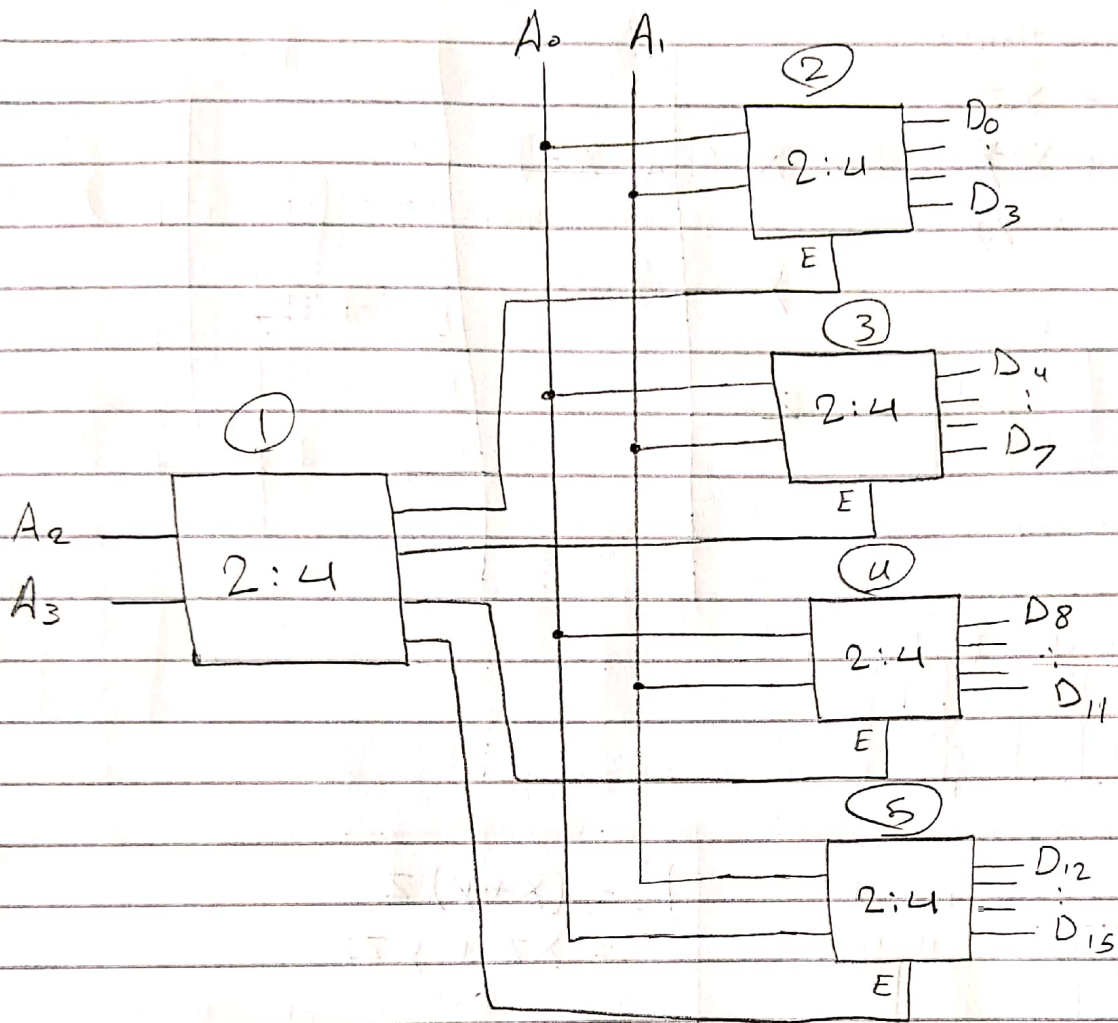 A₀ A₁
②
2:4
D₀
:
D₃
E
③
2:4
D₄
:
D₇
E
①
A₂
A₃
2:4
④
2:4
D₈
:
D₁₁
E
⑤
2:4
D₁₂
:
D₁₅
E